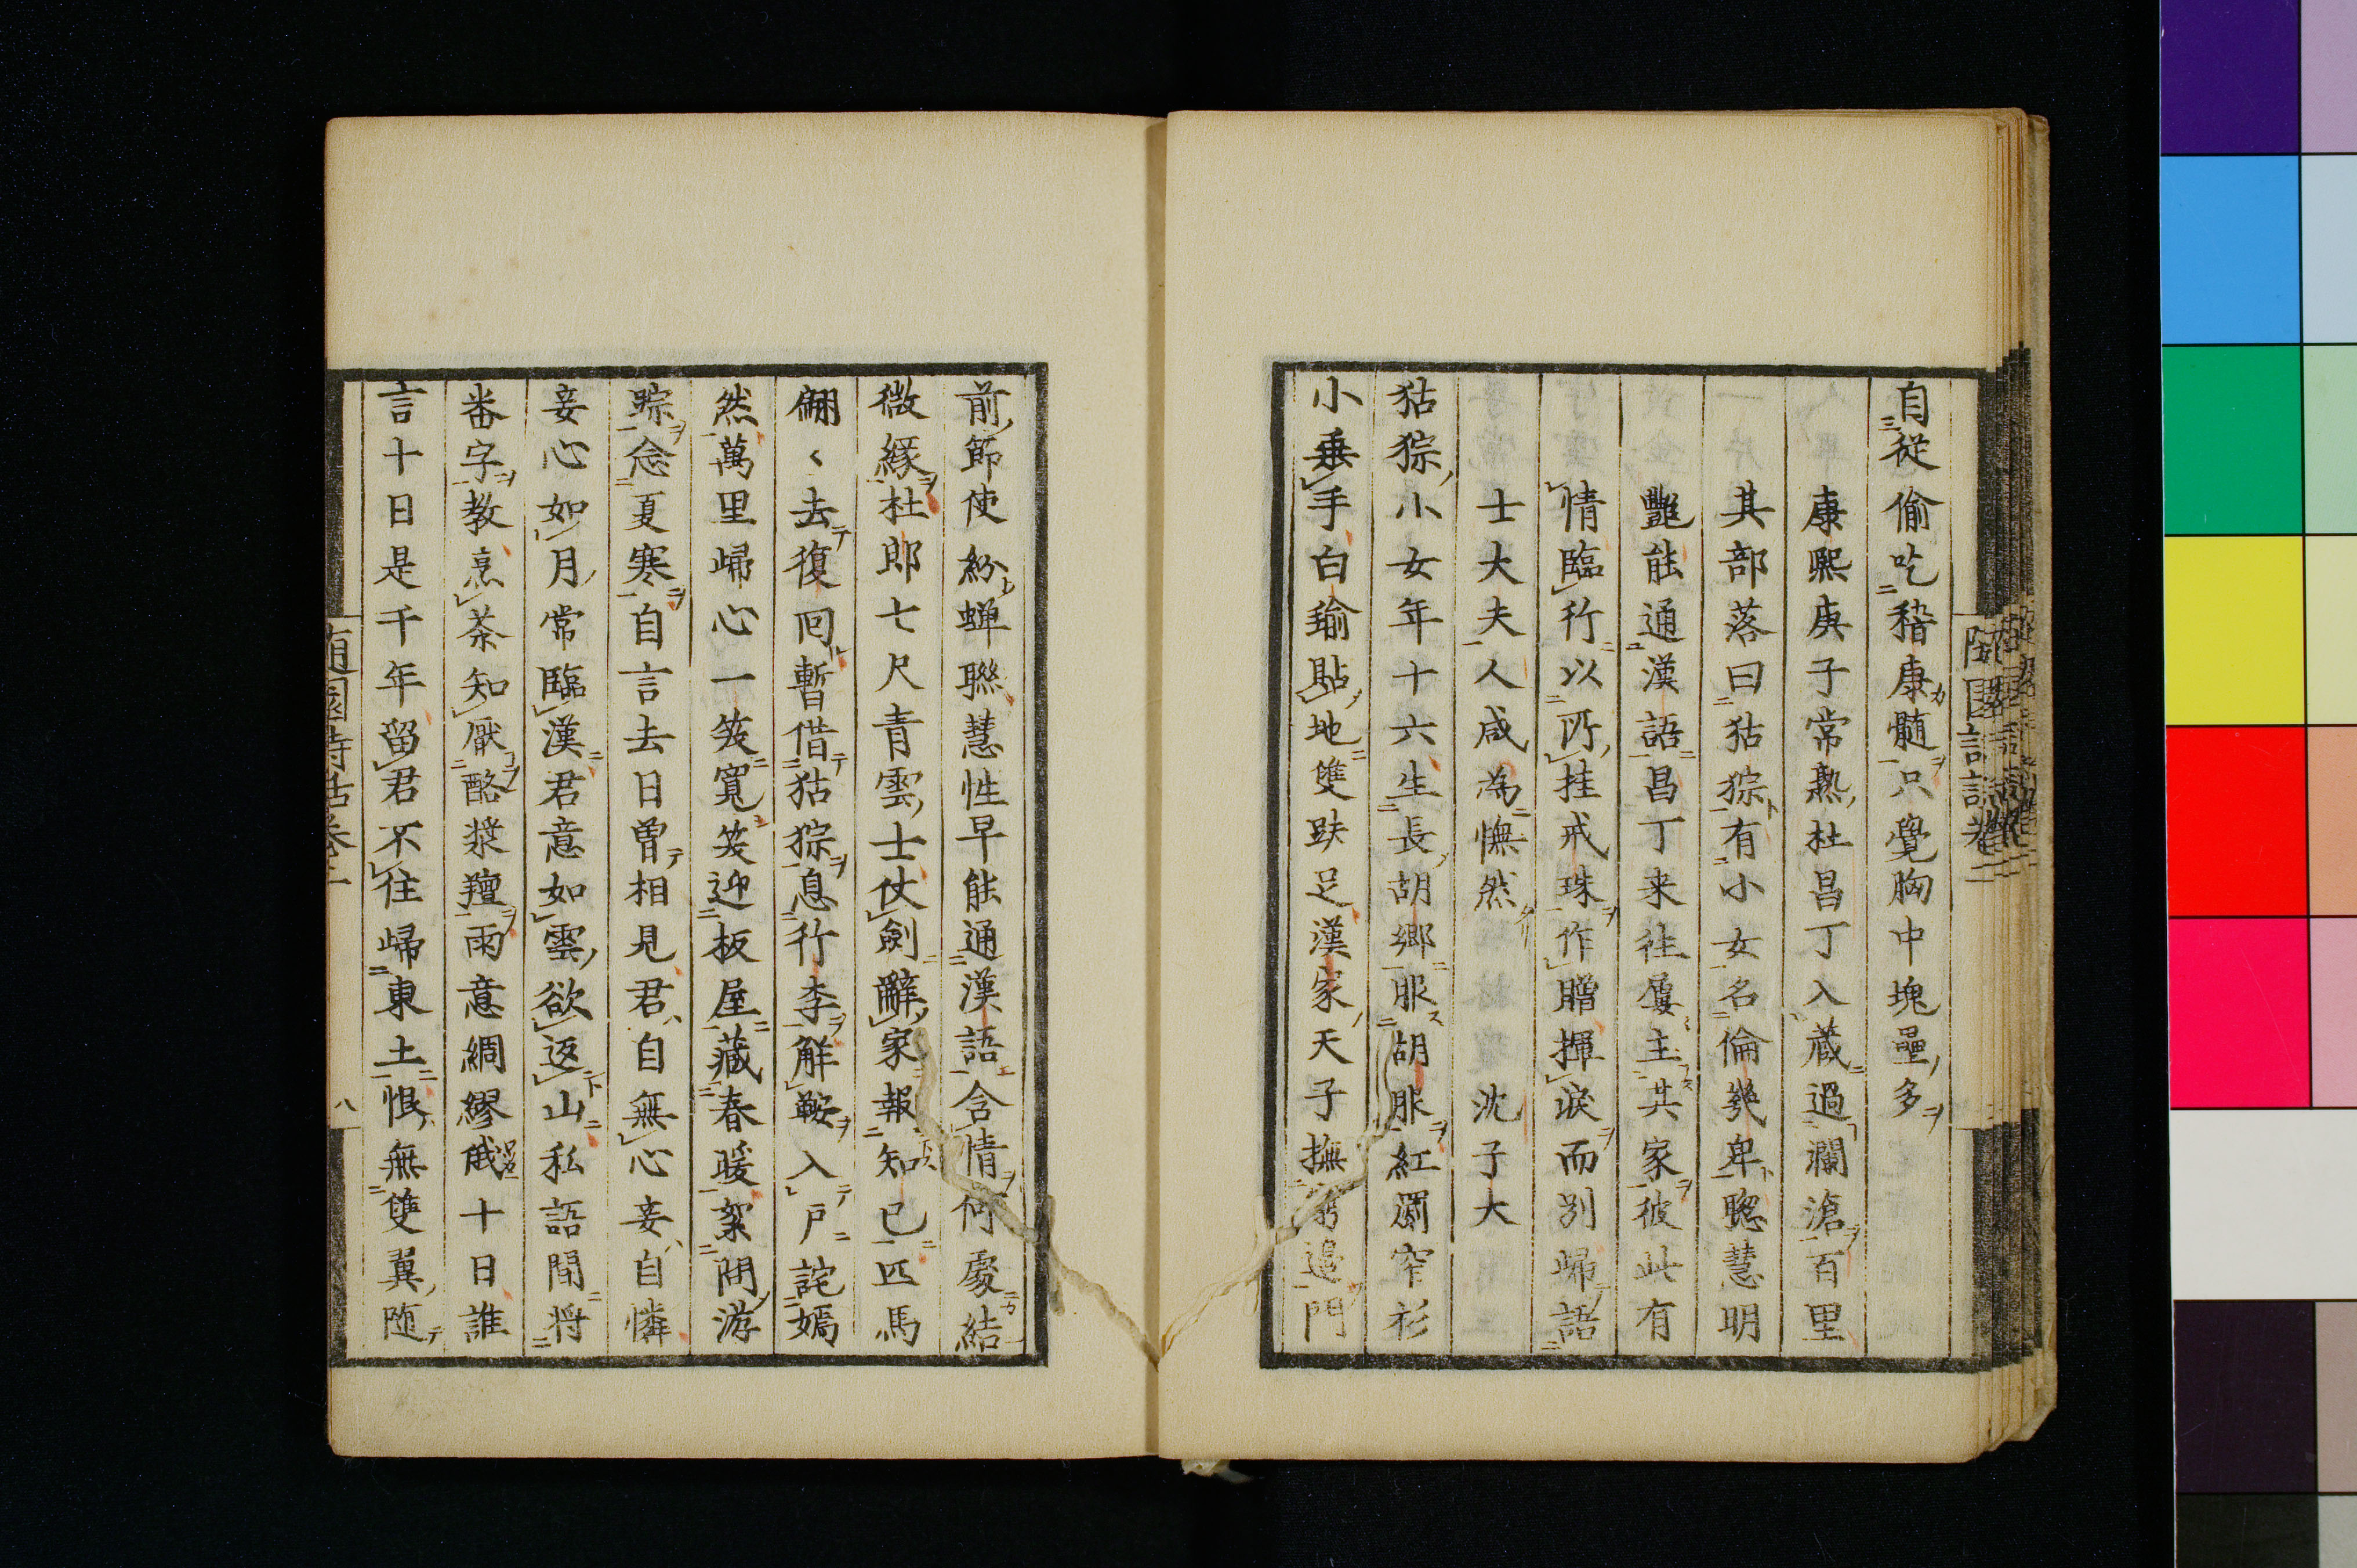 自從偷吃稽康髓只覺胸中塊壘多
康熙庚子常熟杜昌丁入藏過瀾滄百里
其部落曰狜猔有小女名倫幾卑聰慧明
艷能通漢語昌丁来往屢主其家彼此有
情臨行以所挂戒珠作贈揮淚而別歸語
士大夫人咸為憮然 沈子大
狜猔小女年十六生長胡鄉服胡服紅罽窄衫
小垂手白瑜貼地雙趺足漢家天子撫邊門
前節使紛蟬聯慧性早能通漢語含情何處結
微緣杜郎七尺青雲士仗劍辭家報知己匹馬
翩〻去復回暫借狜猔息行李解鞍入戶詫嫣
然萬里歸心一笑寬笑迎板屋藏春暖絮問游
踪念夏寒自言去日曾相見君自無心妾自憐
妾心如月常臨漢君意如雲欲返山私語間將
番字教烹茶知厭酪漿羶雨意綢繆俄十日誰
言十日是千年留君不住歸東土恨無雙翼随
隨園詩話卷二
八